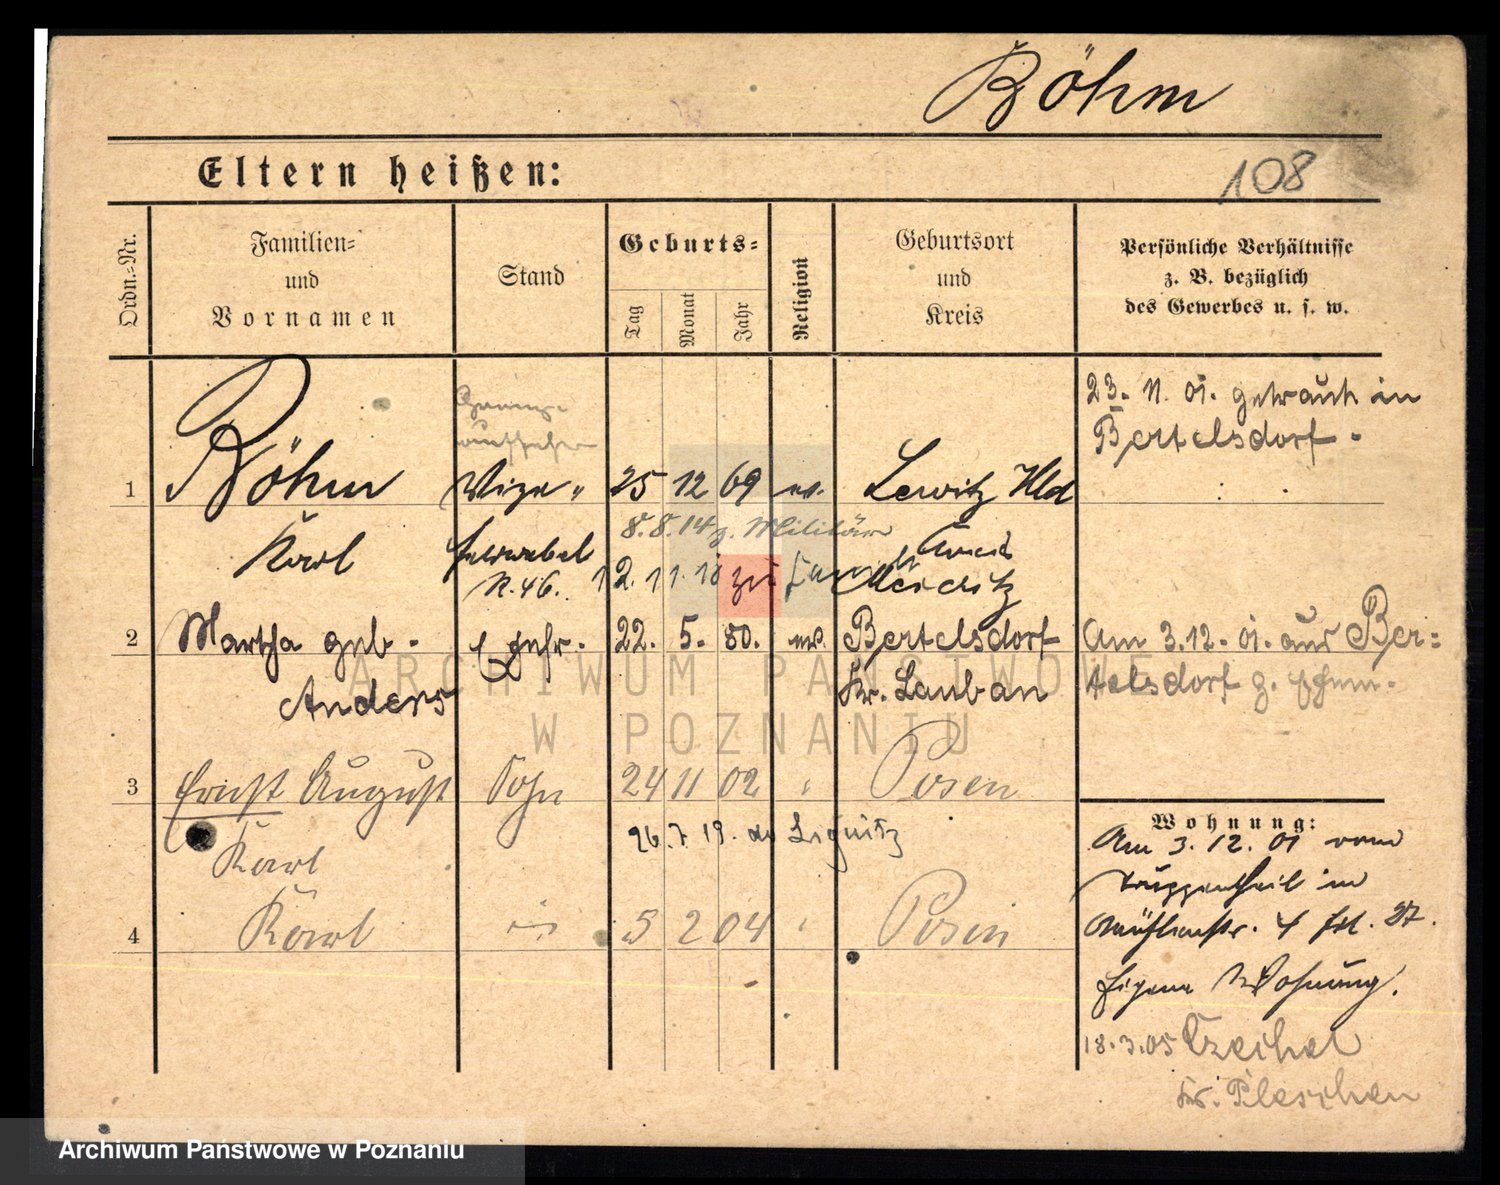 Böhm
Eltern heißen:
108
Ordn.-Nr.
Familien-
und
Vornamen
Stand
Geburts-
Tag
Monat
Jahr
Religion
Geburtsort
und
Kreis
Persönliche Verhältnisse
z. B. bezüglich
des Gewerbes u. s. w.
23. 11. 01. getraut in
Bertelsdorf.
1 Böhm Vize- 25 12 69 ev. Lewitz Hld
8.8.14 z. Militär
Karl feldwebel Kreis
R. 46. 12. 11. 18 zu Meseritz
2 Martha geb. Ehefr. 22. 5. 80. ev. Bertelsdorf
Anders Kr. Lauban
Am 3.12.01. aus Ber-
telsdorf z. Ehem.
3 Ernst August Sohn 24 11 02 Posen
Karl
26.7.19. Liegnitz
4 Karl 5 2 04 Posen
Wohnung:
Am 3. 12. 01 vom
Truppentheil in
4 27.
Eigene Wohnung.
18.3.05
Kr. Pleschen
ARCHIWUM PAŃSTWOWE
W POZNANIU
Archiwum Państwowe w Poznaniu